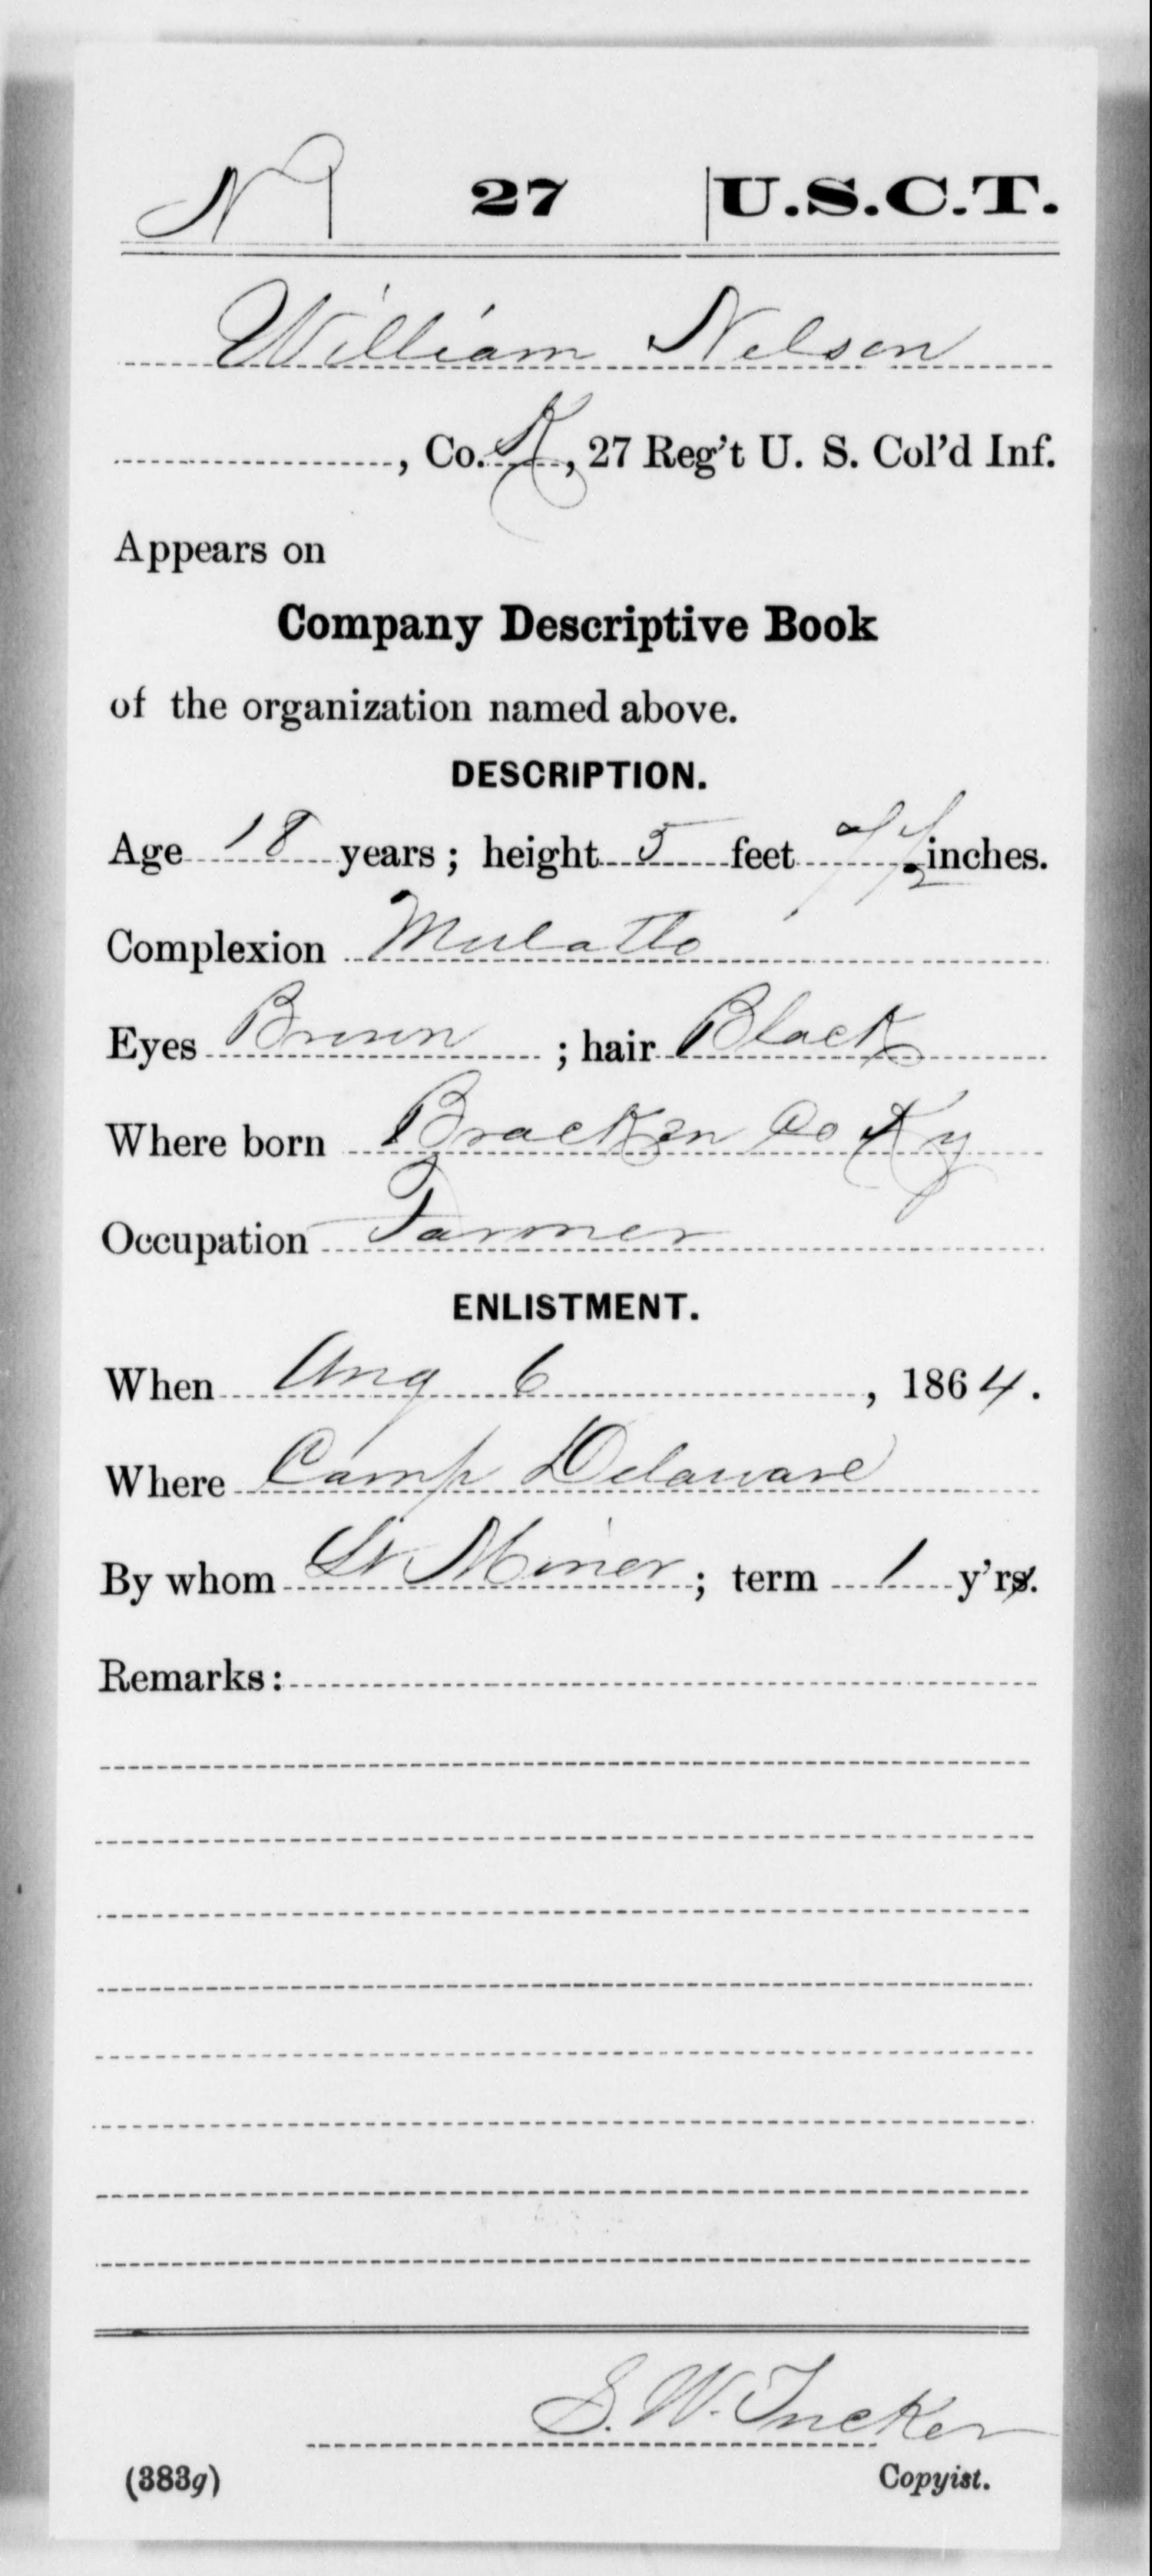 N 27 U.S.C.T.
William Nelson
, Co. K, 27 Reg't U. S. Col'd Inf.
Appears on
Company Descriptive Book
of the organization named above.
DESCRIPTION.
Age 18 years; height 5 feet 7 1/2 inches.
Complexion Mulatto
Eyes Brown ; hair Black
Where born Bracken Co Ky
Occupation Farmer
ENLISTMENT.
When Aug 6, 1864.
Where Camp Delaware
By whom Lt Miner; term 1 y'rs.
Remarks:
S. W. Tucker
(383g) Copyist.